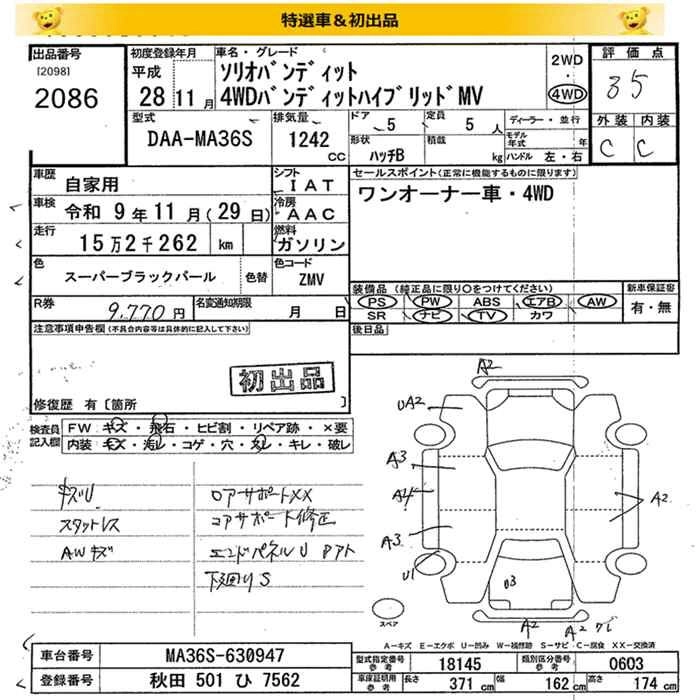 特選車＆初出品
出品番号
[2098]
2086
初度登録年月
平成
28 11月
車名・グレード
ソリオバンディット
4WDバンディットハイブリッドMV
2WD
・
4WD
評価点
35
外装 内装
C C
型式
DAA-MA36S
排気量
1242
CC
ドア
5
定員
5 人
ディーラー・並行
形状
ハッチB
積載
kg
モデル年式 年
ハンドル 左・右
車歴
自家用
シフト
IAT
セールスポイント(正常に機能するものに限ります)
ワンオーナー車・4WD
車検
令和 9年11月(29日)
冷房
AAC
走行
15万2千262 km
燃料
ガソリン
色
スーパーブラックパール
色替
色コード
ZMV
装備品 (純正品に限り○をつけてください)
新車保証書
PS PW ABS エアB AW
有・無
SR ナビ TV カワ
R券
9,770 円
名変通知期限
月 日
後日品
注意事項申告欄(不具合内容等は具体的に記入して下さい)
初出品
修復歴 有 [箇所 ]
検査員記入欄
FW キズ・飛石・ヒビ割・リペア跡・×要
内装・キズ・汚レ・コゲ・穴・スレ・キレ・破レ
キズU
スタットレス
AWキズ
ロアサポートXX
コアサポート修正
エンドパネルU Pアト
下廻りS
A2
UA2
A3
A4
A3
U1
A2
U3
A2
A2
スペア
A－キズ E－エクボ U－凹み W－補修跡 S－サビ・C－腐食 XX－交換済
車台番号
MA36S-630947
登録番号
秋田 501 ひ 7562
型式指定番号
参考
18145
類別区分番号
参考
0603
車庫証明用
参考
長さ
371 cm
幅
162 cm
高さ
174 cm